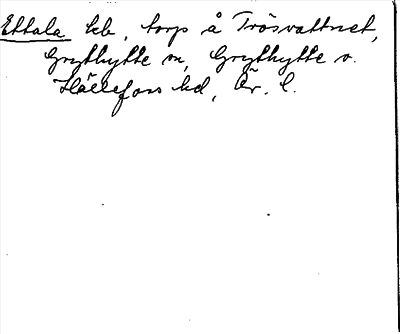 Ettala hb, torp å Trösvattnet,
Grythytte sn, Grythytte o.
Hällefors hd, Ör. l.